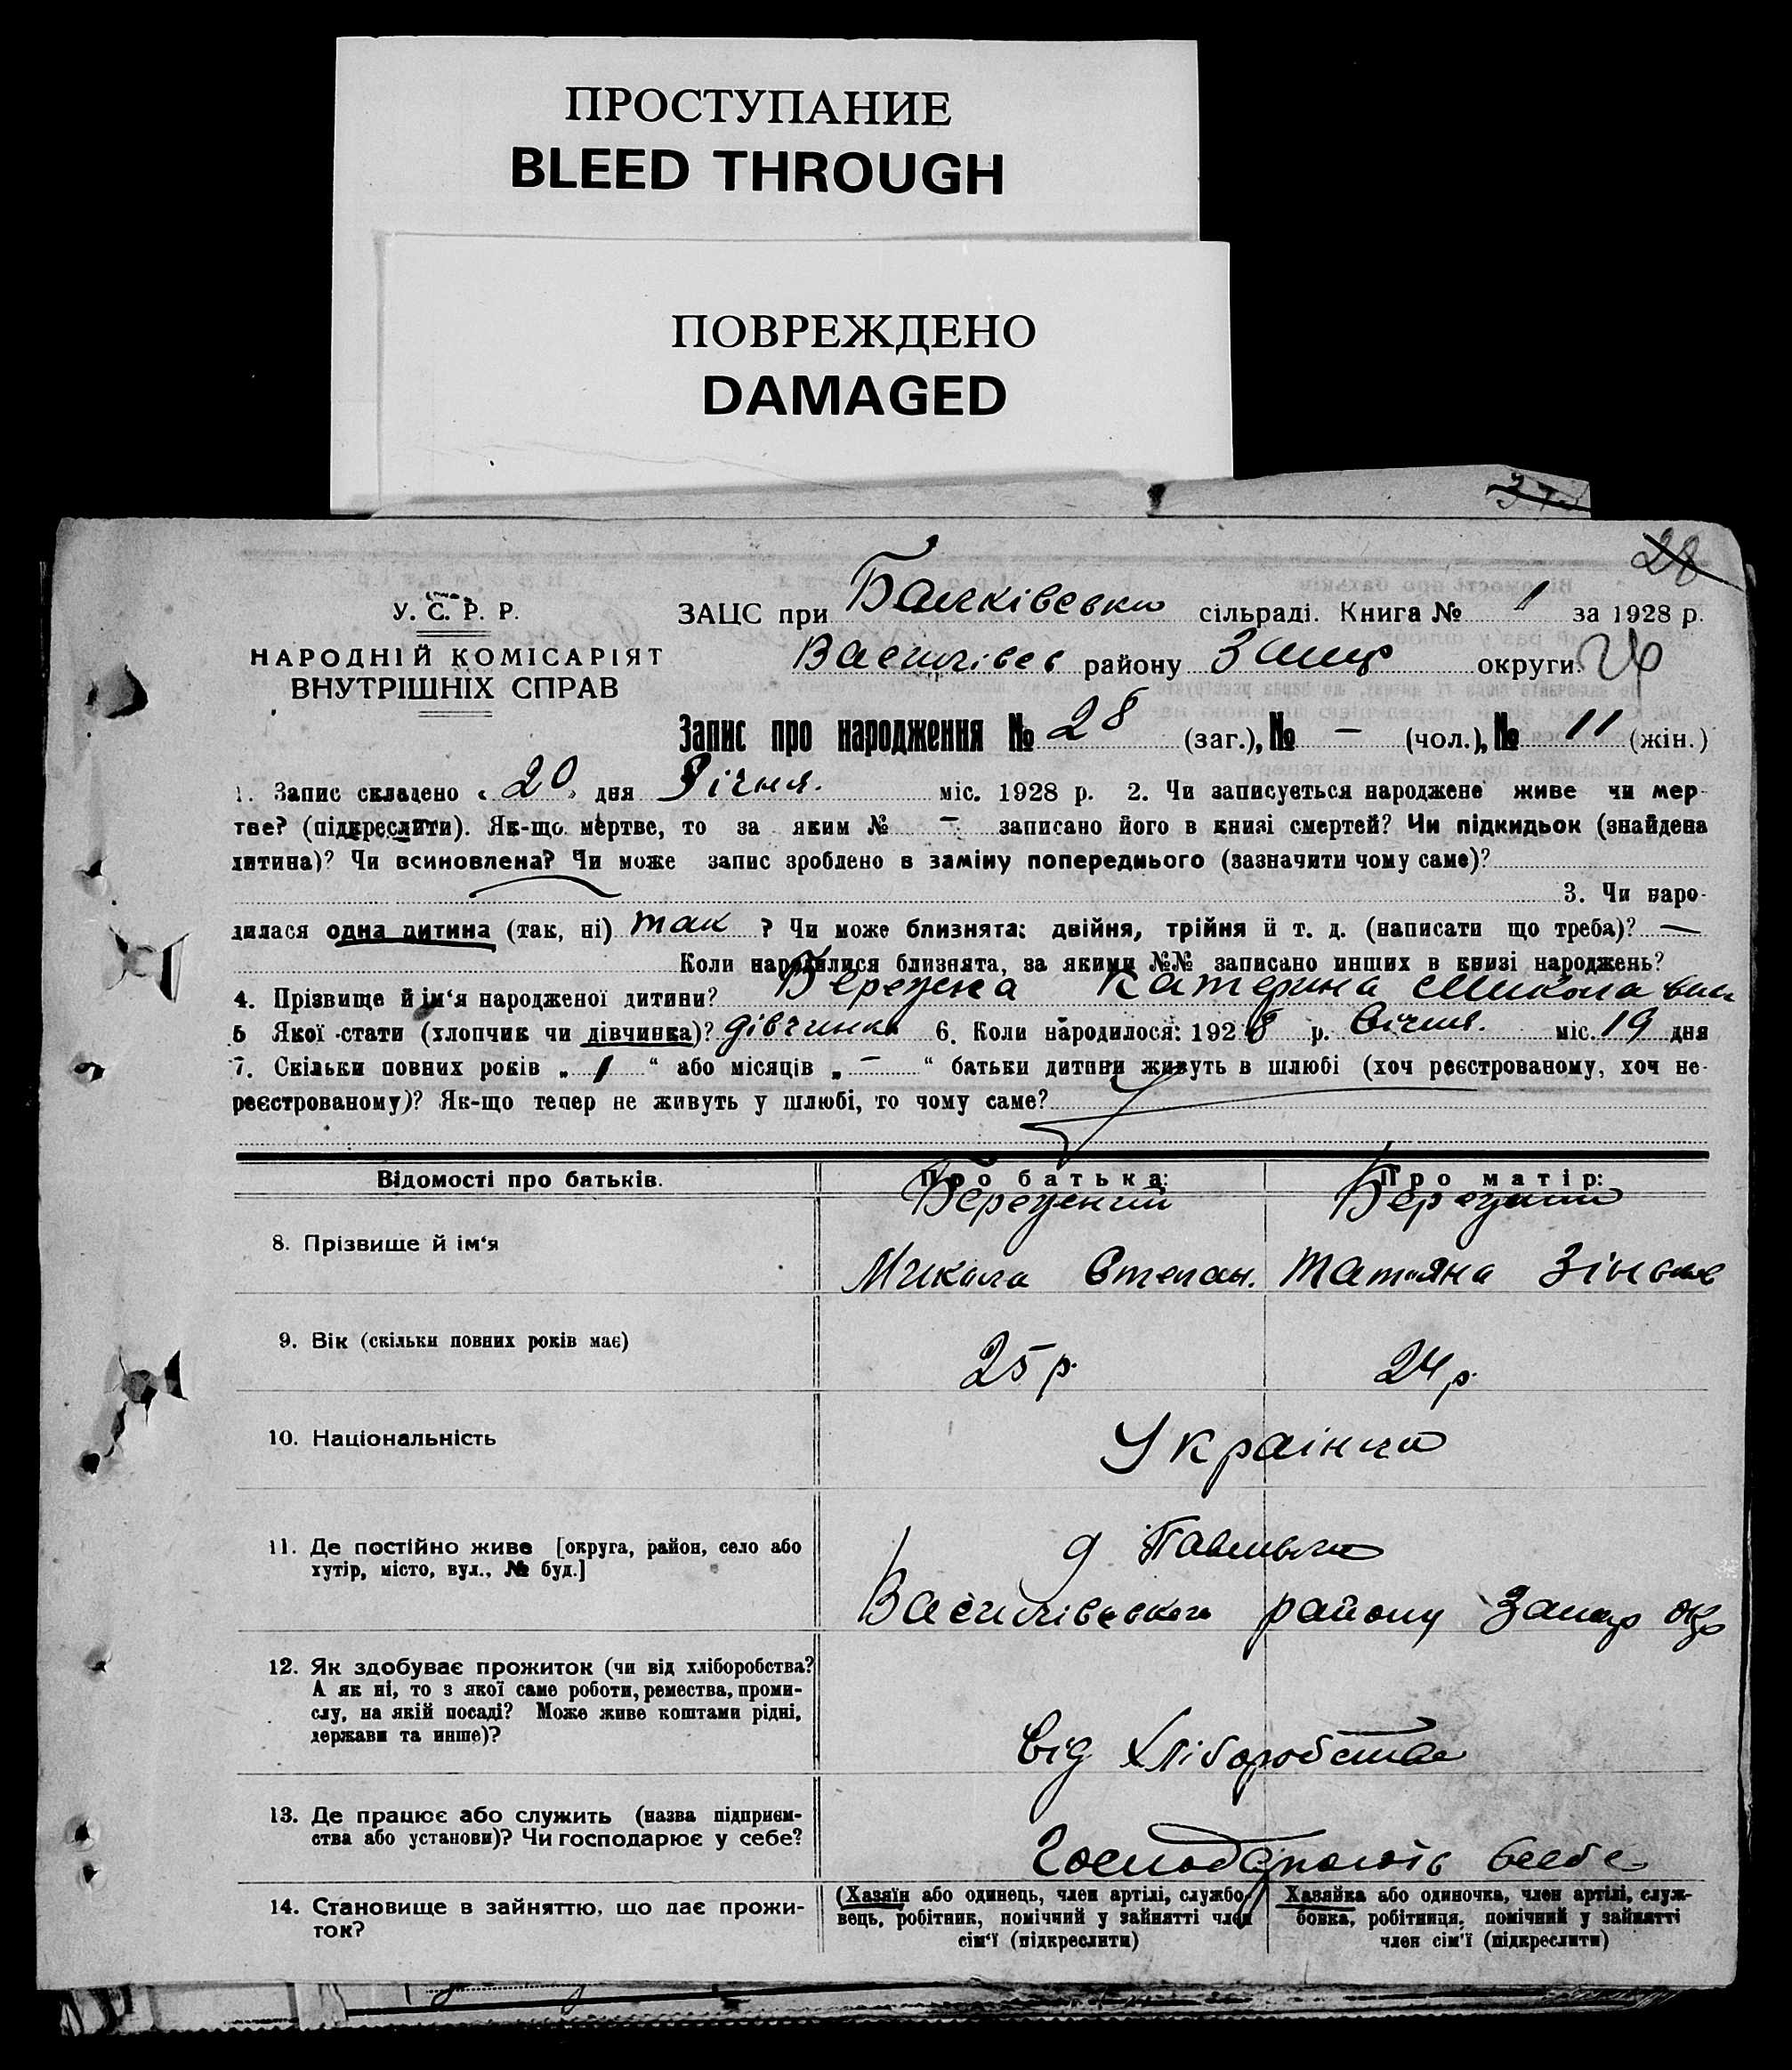 ПРОСТУПАНИЕ
BLEED THROUGH
ПОВРЕЖДЕНО
DAMAGED
37
28
У. С. Р. Р.
НАРОДНІЙ КОМІСАРІЯТ
ВНУТРІШНІХ СПРАВ
ЗАЦС при Балківські сільраді. Книга № 1 за 1928 р.
Василівсь району Запор округи.
Запис про народження № 28 (заг.), № – (чол.), № 11 (жін.)
1. Запис складено « 20 » дня Січня. міс. 1928 р. 2. Чи записується народжене живе чи мер-
тве? (підкреслити). Як-що мертве, то за яким № – записано його в книзі смертей? Чи підкидьок (знайдена
дитина)? Чи всиновлена? Чи може запис зроблено в заміну попереднього (зазначити чому саме)?
3. Чи наро-
дилася одна дитина (так, ні) так ? Чи може близнята: двійня, трійня й т. д. (написати що треба)? —
Коли народилися близнята, за якими №№ записано инших в книзі народжень?
4. Прізвище й ім‘я народженої дитини? Катерина Микола
5 Якої стати (хлопчик чи дівчинка)? дівчинка 6. Коли народилося: 1928 р. Січня. міс. 19 дня
7. Скільки повних років „ 1 “ або місяців „ – “ батьки дитини живуть в шлюбі (хоч реєстрованому, хоч не-
реєстрованому)? Як-що тепер не живуть у шлюбі, то чому саме?
Відомості про батьків. Про батька: Про матір:
8. Прізвище й ім‘я
Микола Степан. Татьяна Зіновьев
9. Вік (скільки повних років має) 25 р. 24 р.
10. Національність Українці
11. Де постійно живе [округа, район, село або
хутір, місто, вул., № буд.]
Василівського району Запор окр
12. Як здобуває прожиток (чи від хліборобства?
А як ні, то з якої саме роботи, ремества, проми-
слу, на якій посаді? Може живе коштами рідні,
держави та инше)?
Від Хліборобства
13. Де працює або служить (назва підприєм-
ства або установи)? Чи господарює у себе?
Господарюють всебе
14. Становище в зайняттю, що дає прожи-
ток?
(Хазяїн або одинець, член артілі, службо-
вець, робітник, помічний у зайнятті член
сім‘ї (підкреслити)
Хазяйка або одиночка, член артілі, служ-
бовка, робітниця, помічний у зайнятті
член сім‘ї (підкреслити)